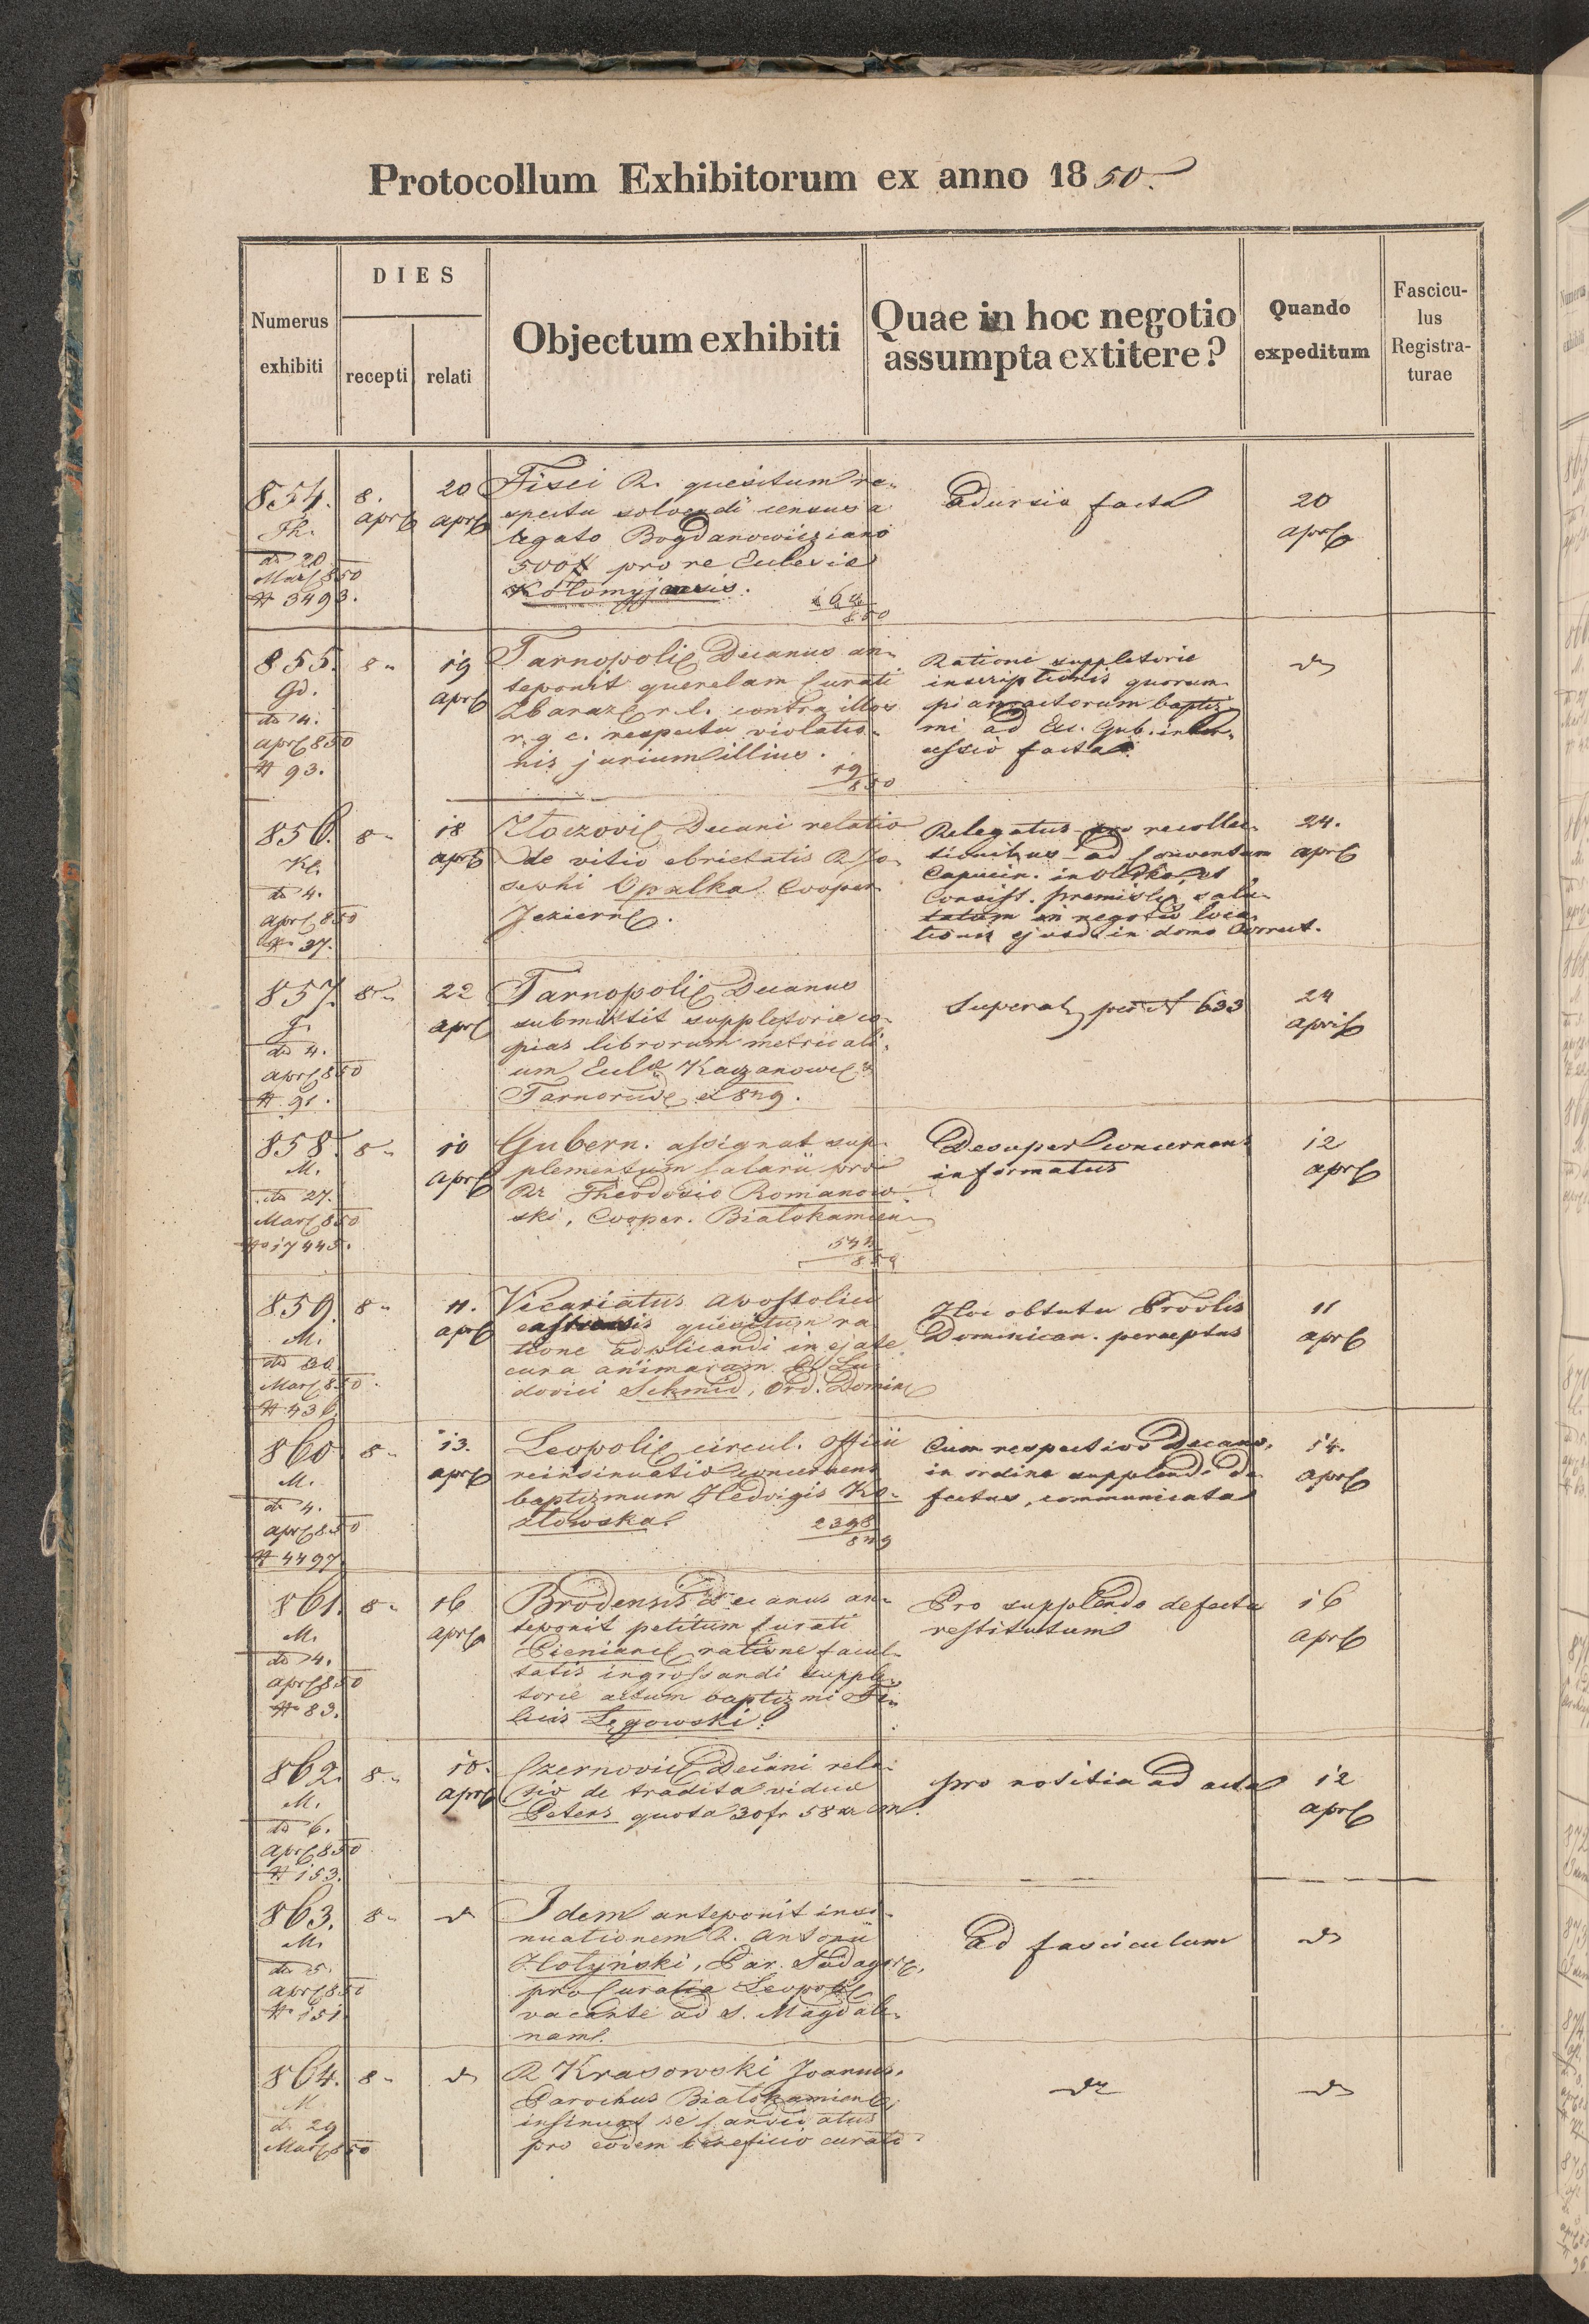 Protocollum Exhibitorum ex anno 1850.
Numerus
exhibiti
DIES
recepti
relati
Objectum exhibiti
Quae in hoc negotio
assumpta extitere?
Quando
expeditum
Fascicu-
lus
Registra-
turae
854.
dto 20
Mar 850
N 3493.
8.
apr
20
apr
Fisci R. quesitum re-
spectu solvendi census a
legato Bogdanowicziano
500 f pro re Eulesie
Kołomyjensis.
850
facta
20
apr
855.
Gd.
dto 4.
apr 850
N 93.
8
19
apr
Tarnopoli Decanus an-
teponit querelam Curati
Zbaraz r. l. contra illos
r. g. c. respectu violatio-
nis jurium illius.
19
850
Ratione suppletorie
inscriptionis quorum-
pi anactorum baptiz-
mi ad Ex. Gub. inter-
cessio facta.
dto
856.
Kl.
dto 4.
apr 850
N 37.
8
18
apr
Złoczovi Decani relatio
de vitio ebrietatis R Jo-
sephi Opałka Cooper.
Jezierne.
Relegatus pro recollec-
tionibus ad Conventum
Capucin. in Olesko, et
Consist. premisli salu-
tatum in negotio loca-
tionis ejusd. in domo Correct.
24.
apr
857.
J.
dto 4.
apr 850
N 91.
8
22
apr
Tarnopoli Decanus
submittit suppletorie co-
pias librorum metricali-
um Kaczanow
Tarnorud 849.
Superat per N 633
24
april
858.
M.
dto 27.
Mar 850
N 17445.
8
10
apr
Gubern. assignat sup-
plementum Salarii pro
Rr Theodosio Romanow-
ski, Cooper. Białokamien
850
Desuper concernens
informatus
12
apr
859.
M.
dto 30.
Mar 850
N 436.
8
11.
apr
Vicariatus Apostolici
castrensis quesitum ra-
tione adplicandi in ejate
cura animarum R Lu-
dovici Schmid, Ord. Domini
Hoc obtutu Provlis
Dominican. perceptus
11
apr
860.
M.
dto 4.
apr 850
N 4497
8
13.
apr
Leopoli circul. Officii
reinsinuatio concernens
baptizmum Hedvigis Ko-
złowska.
2398
849
Cum respectivo Decano,
in ordine supplendi de-
fectus, communicata
14.
apr
861.
M.
dto 4.
apr 850
N 83.
8
16
apr
Brodensis Decanus an-
teponit petitum Curati
Pieniane ratione facul-
tatis ingrossandi supple-
torie actum baptizmi Fe-
licis Łęgowski.
Pro supplendo defectu
restitutum
16
apr
862.
M.
dto 6.
apr 850
N 153.
8
10.
apr
Czernovic Decani rela-
tio de tradita vidue
Peters quota 30 fr 58 xr CM.
pro notitia ad acta
12
apr
863.
M.
dto 5.
apr 850
N 151.
8
dto
Idem anteponit insi-
nuationem R. Antonii
Hołyński, Par. Sadagor,
pro Curatia Leopoli
vacante ad S. Magdale-
nam.
ad fasciculum
dto
864.
M.
dto 29
Mar 850
8
dto
R Krasowski Joannes,
Parochus Białokamien,
insinuat se Candidatus
pro eodem beneficio curato.
dto
dto